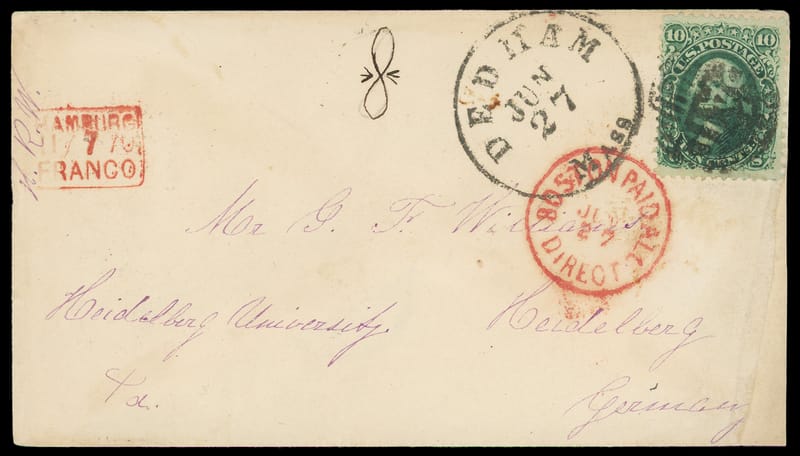 DEDHAM MASS
JUN
27
10 10
U.S. POSTAGE
H. R. W.
HAMBURG
7 70
FRANCO
BOSTON PAID ALL
27
DIRECT
Mr G. F. Williams
Heidelberg University
Heidelberg
Germany